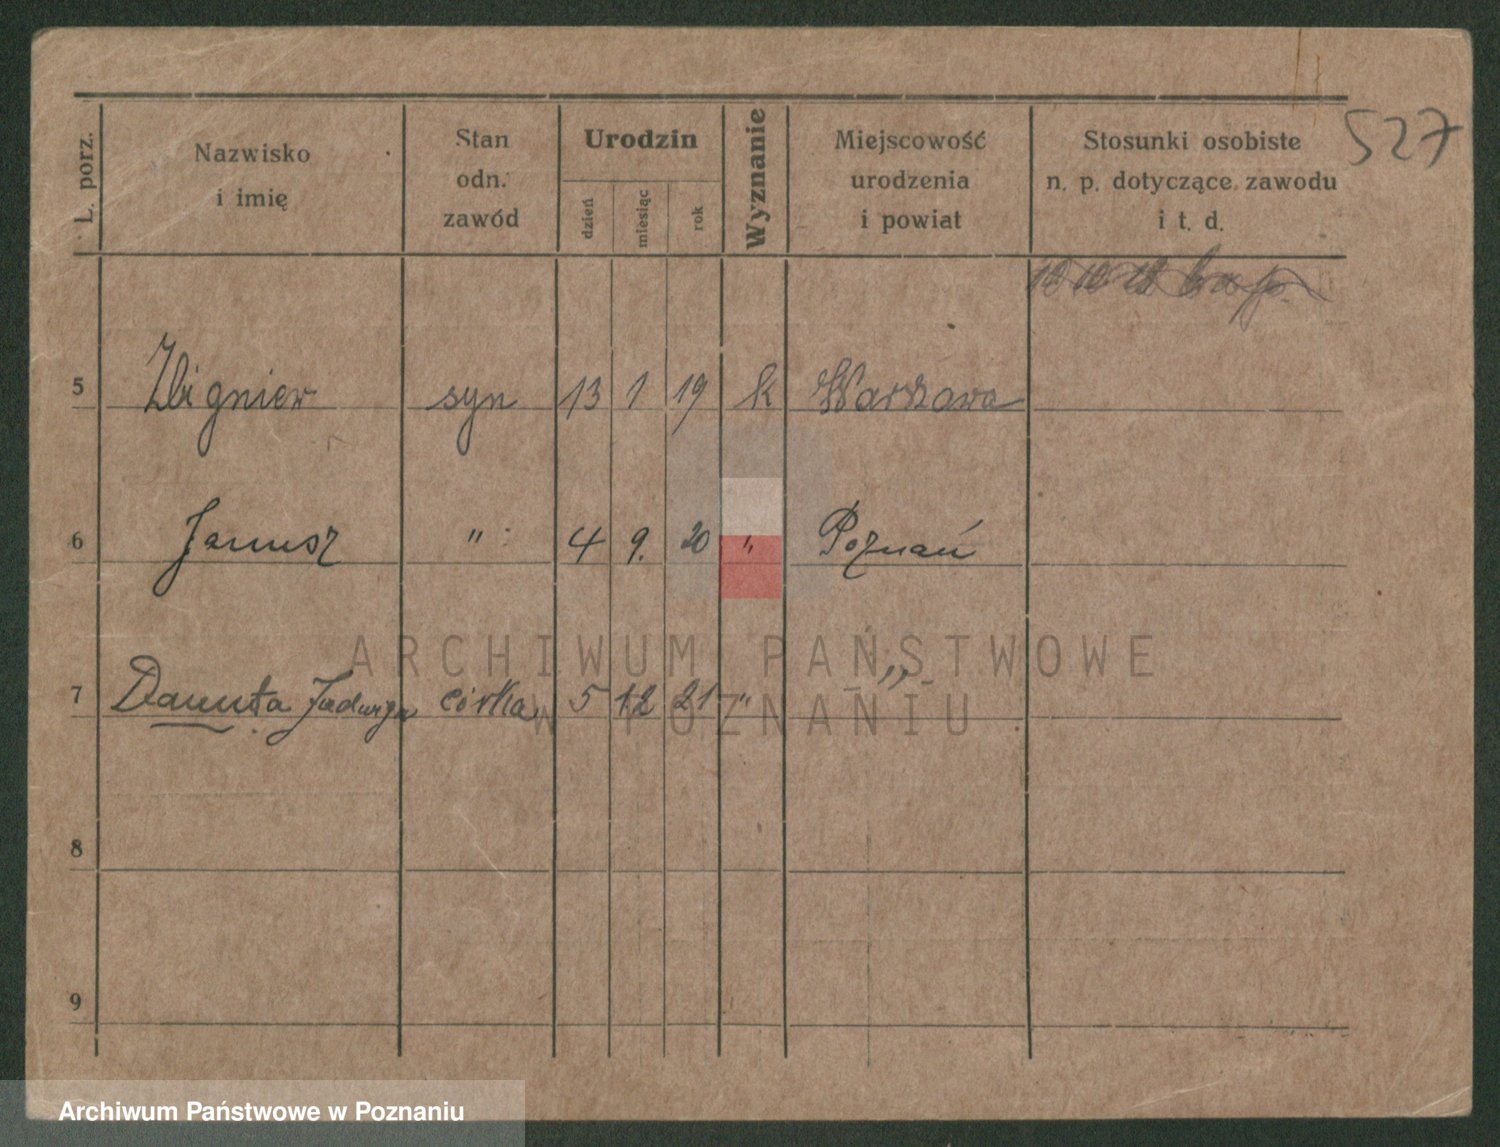 527
L. porz.
Nazwisko
i imię
Stan
odn.
zawód
Urodzin
dzień
miesiąc
rok
Wyznanie
Miejscowość
urodzenia
i powiat
Stosunki osobiste
n. p. dotyczące zawodu
i t. d.
5 Zbigniew syn 13 1 19 k Warszawa
6 Janusz " 4 9. 20 " Poznań
7 Danuta Jadwiga córka 5 12 21 " - " -
8
9
ARCHIWUM PAŃSTWOWE
W POZNANIU
Archiwum Państwowe w Poznaniu